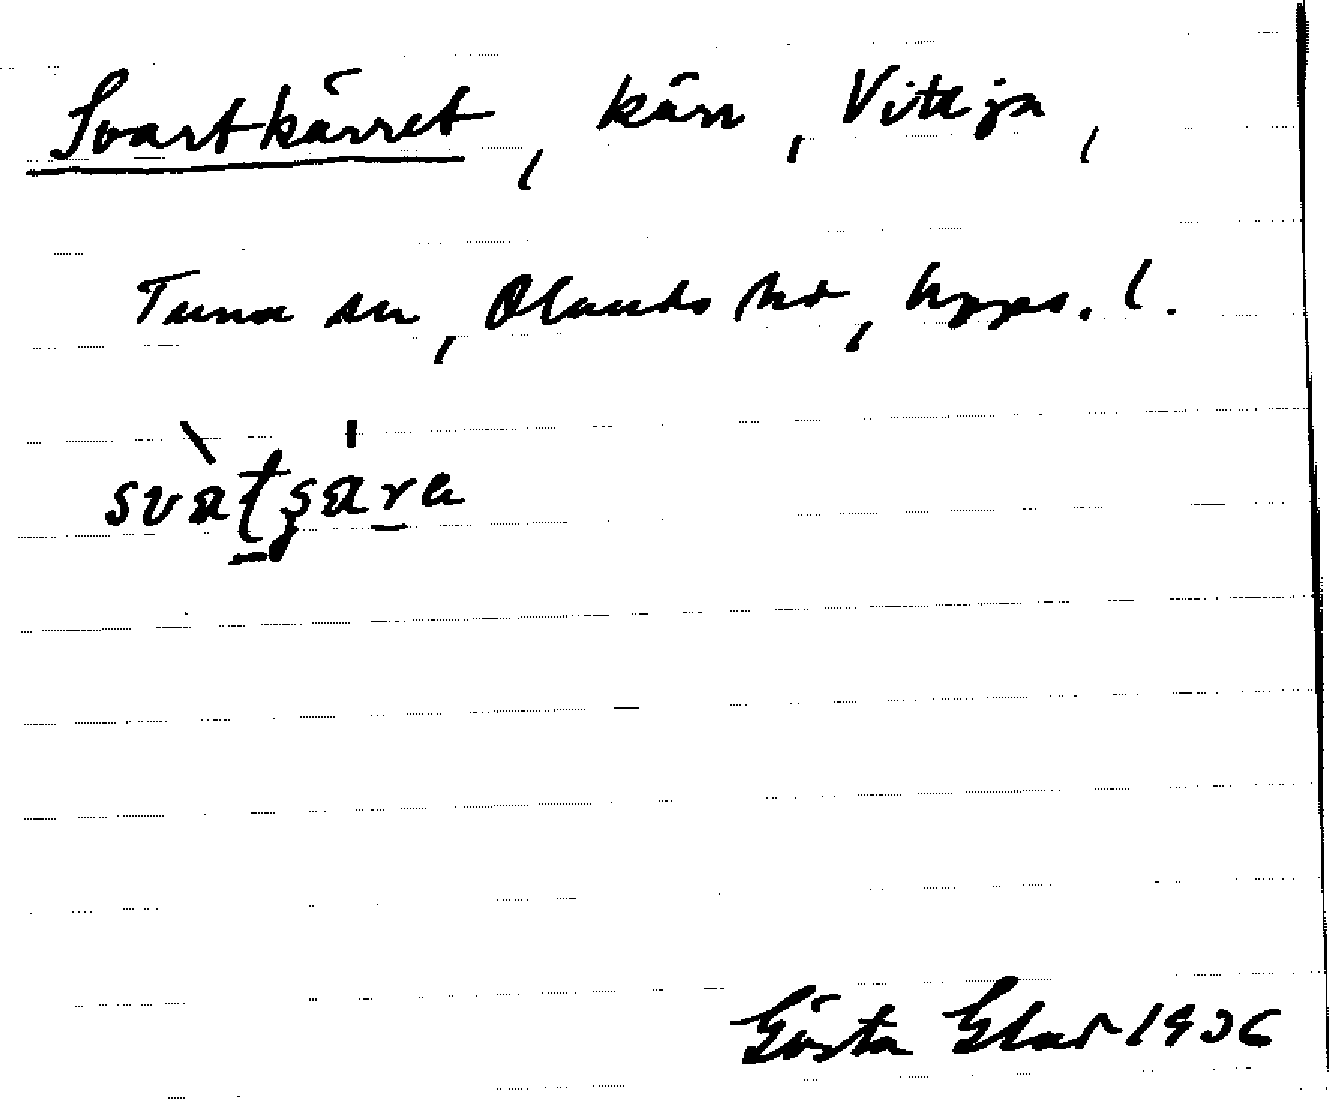 Svartkärret, kärr, Vittja,
Tuna sn, Olands hd, Upps. l.
Gösta Elar 1936